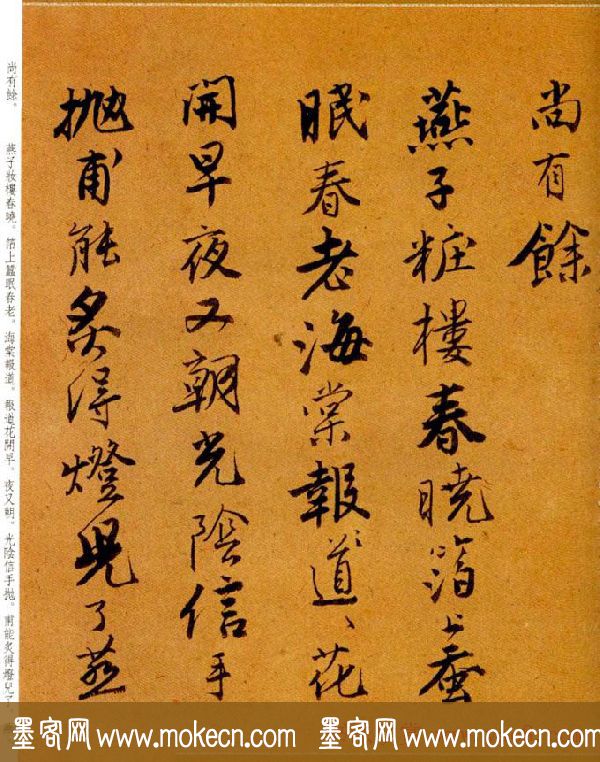 尚有餘
燕子粧樓春曉箔上蚕
眠春老海棠報道〻花
開早夜又朝光陰信手
拋甫能炙得燈児了蒸
尚有餘。 燕子妝樓春曉。箔上蠶眠春老。海棠報道。報道花開早。夜又朝。光陰信手拋。甫能炙得燈兒了
墨客网 www.mokecn.com 墨客网 www.mokecn.com